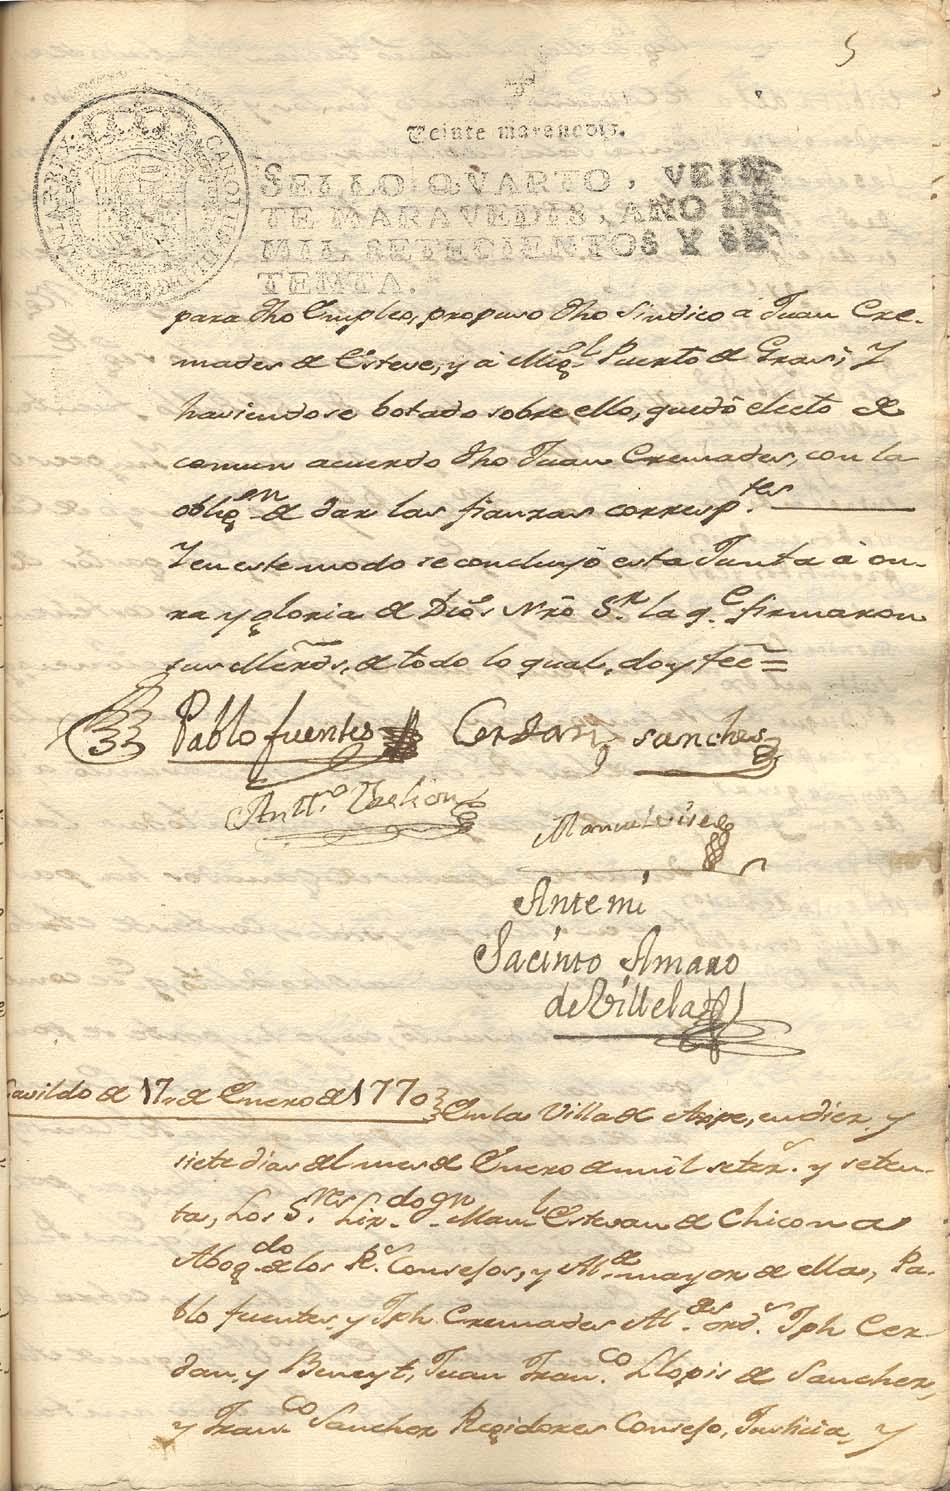 5
Veinte maravedis.
SELLO QVARTO, VEIN
TE MARAVEDIS, AÑO DE
MIL SETECIENTOS Y SE
TENTA.
para dho Empleo, propuso dho Sindico â Juan Cre-
mades de Esteve, y â Migl. Puerto de Grasi, Y
haviendose botado sobre ello, quedô electo de
comun acuerdo dho Juan Cremades, con la
obligon. de dar las fianzas corresptes.
Y en este modo se concluyô esta Junta â on-
rra y gloria de Dios Nro Sr. la qe. firmaron
sus Merds, de todo lo qual, doy feê =
Pablo fuentes Cerdan sanches
Antto.
Antemi
Jacinto Amaro
de Villela
Cavildo de 17. de Enero de 1770
En la Villa de Aspe, en diez y
siete dias del mes de Enero de mil setezs. y seten-
ta, Los Sres. Lizdo. Dn. Manl. Estevan de Chicona
Abogdo. de los Rs. Consejos, y Alde. mayor de ella, Pa-
blo fuentes, y Jph Cremades Aldes. ords. Jph Cer-
dan, y Beneyt, Juan Franco. Llopis de Sanchez,
y Franco Sanchez Regidores Consejo, Justicia, y